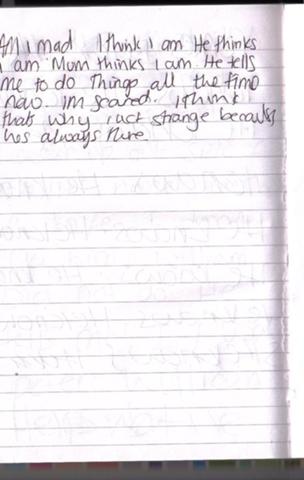 Am I mad I think I am He thinks
I am Mum thinks I am. He tells
me to do Things all the time
now. Im scared. I think
thats why I act strange because
hes always there